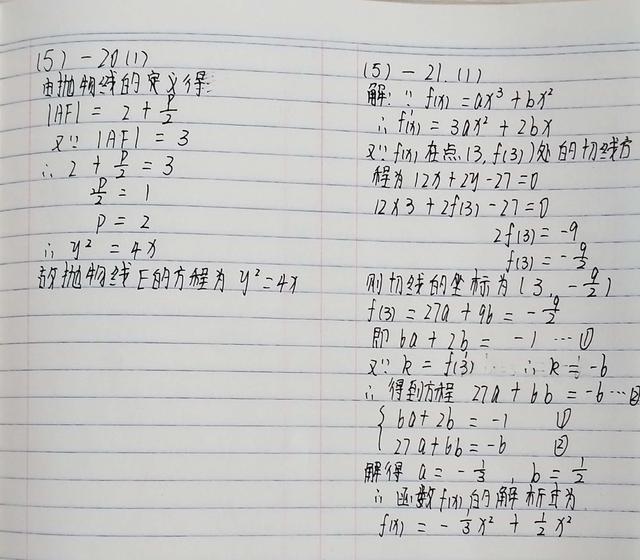 (5) - 20 (1)
由抛物线的定义得:
|AF| = 2 + p/2
又∵ |AF| = 3
∴ 2 + p/2 = 3
p/2 = 1
p = 2
∴ y² = 4x
故抛物线E的方程为 y² = 4x
(5) - 21. (1)
解: ∵ f(x) = ax³ + bx²
∴ f'(x) = 3ax² + 2bx
又∵ f(x) 在点 (3, f(3)) 处的切线方
程为 12x + 2y - 27 = 0
12×3 + 2f(3) - 27 = 0
2f(3) = -9
f(3) = -9/2
则切线的坐标为 (3, -9/2)
f(3) = 27a + 9b = -9/2
即 6a + 2b = -1 … ①
又∵ k = f'(3) ∴ k = -6
∴ 得到方程 27a + 6b = -6 … ②
{ 6a + 2b = -1 ①
27a + 6b = -6 ②
解得 a = -1/3 , b = 1/2
∴ 函数 f(x) 的解析式为
f(x) = -1/3 x² + 1/2 x²